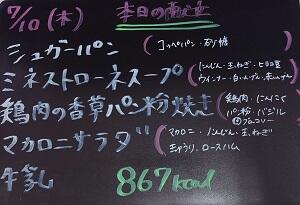 7/10(木) 本日の献立
シュガーパン (コッペパン・砂糖
ミネストローネスープ (にんじん・玉ねぎ・ヒヨコ豆
ウインナー・白いんげん・赤いんげん
鶏肉の香草パン粉焼き (鶏肉・にんにく
パン粉・バジル
ブロッコリー
マカロニサラダ (マカロニ・にんじん・玉ねぎ
きゅうり・ロースハム
牛乳 867kcal